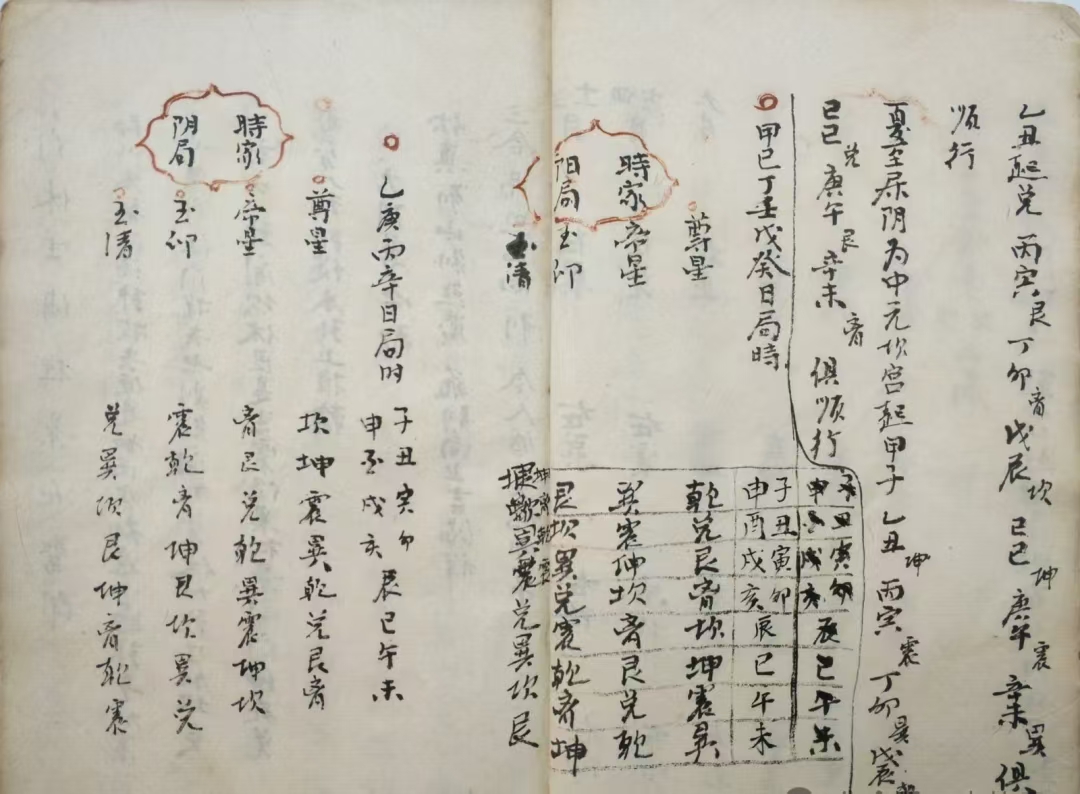 乙丑起兑 丙寅艮 丁卯离 戊辰坎 己巳坤 庚午震 辛未巽 俱
順行
夏至居阴为中元坎宫起甲子 乙丑坤 丙寅震 丁卯巽 戊辰
己巳兑 庚午艮 辛未离 俱順行
子丑寅卯辰巳午未
申酉戌亥
甲己丁壬戊癸日局時
子丑寅卯辰巳午未
申酉戌亥
尊星 乾兑艮离坎坤震巽
時家 帝星 巽震坤坎离艮兑乾
阳局 玉印 艮坎巽兑震乾离坤
玉清 坤离乾震兑巽坎艮
乙庚丙辛日局时 子丑寅卯辰巳午未
申酉戌亥
尊星 坎坤震巽乾兑艮离
時家 帝星 离艮兑乾巽震坤坎
阴局 玉印 震乾离坤艮坎巽兑
玉清 兑巽坎艮坤离乾震